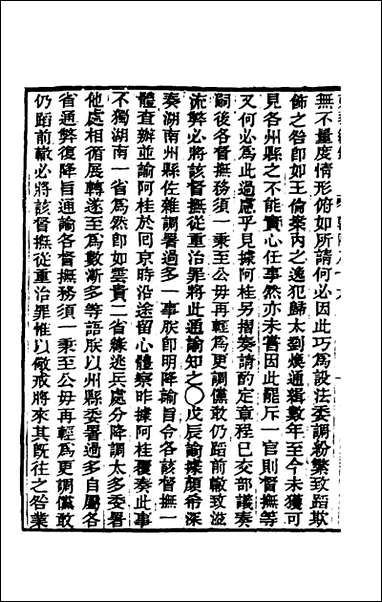 無不量度情形俯如所請何必因此巧為設法委調紛繁致蹈欺
飾之咎即如王倫案內之逸犯歸太到煥通緝數年至今未獲可
見各州縣之不能實心任事然亦未嘗因此罷斥一官則督撫等
又何必為此過慮乎見據阿桂另摺奏請酌定章程已交部議奏
嗣後各督撫務須一秉至公毋再輕為更調儻敢仍蹈前轍致滋
流弊必將該督撫從重治罪將此通諭知之〇戊辰諭據顏希深
奏湖南州縣佐雜調署過多一事朕即明降諭旨令各該督撫一
體查辦並諭阿桂於回京時沿途留心體察昨據阿桂覆奏此事
不獨湖南一省為然即如雲貴二省緣逃兵處分降調太多委署
他處相循展轉遂至為數漸多等語朕以州縣委署過多自屬各
省通弊復降旨通諭各督撫務須一秉至公毋再輕為更調儻敢
仍蹈前轍必將該督撫從重治罪惟以儆戒將來其既往之咎業